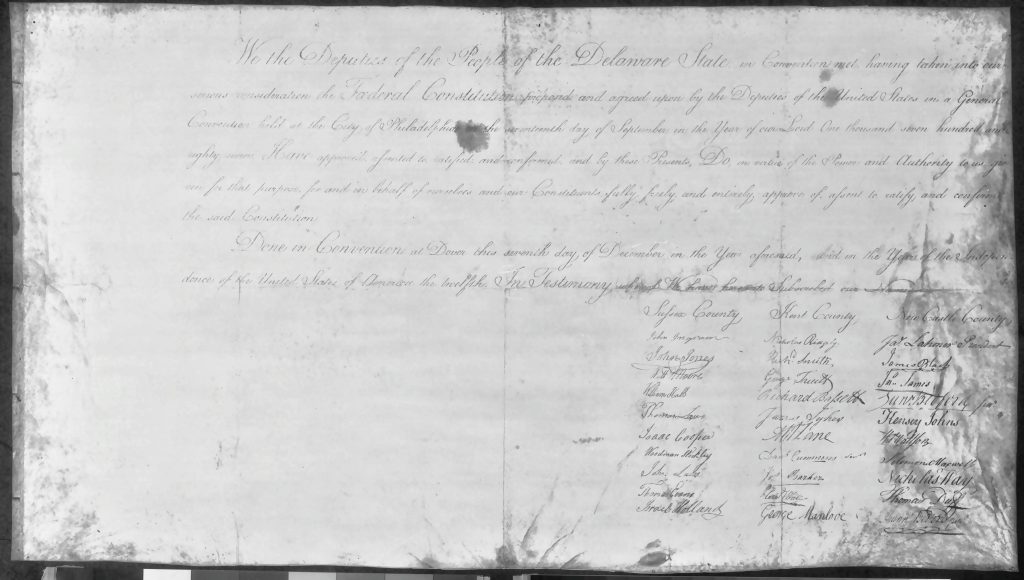 We the Deputies of the People of the Delaware State, in Convention met, having taken into our
serious consideration the Fœderal Constitution proposed and agreed upon by the Deputies of the United States in a General
Convention held at the City of Philadelphia on the seventeenth day of September in the Year of our Lord One thousand seven hundred and
eighty seven, Have approved, assented to, ratified, and confirmed, and by these Presents, Do, in virtue of the Power and Authority to us gi-
ven for that purpose, for and in behalf of ourselves and our Constituents, fully, freely, and entirely, approve of, assent to, ratify, and confirm
the said Constitution.
Done in Convention at Dover this seventh day of December in the Year aforesaid, and in the Year of the Indepen-
dence of the United States of America the twelfth. In Testimony whereof We have hereunto Subscribed our
Sussex County Kent County New Castle County
John Ingram Nicholas Ridgely Jas. Latimer President
John Jones Richd. Smith James Black
Wm. Moore George Truitt Jno. James
William Hall Richard Bassett Gunning Bedford
Thomas Laws James Sykes Kensey Johns
Isaac Cooper A McLane
Woodman Stockly Danl. Cummins Solomon Maxwell
John Laws Jos. Barker Nicholas Way
Thomas Evans Thomas Duff
Israel Holland George Manlove Gunn Bedford